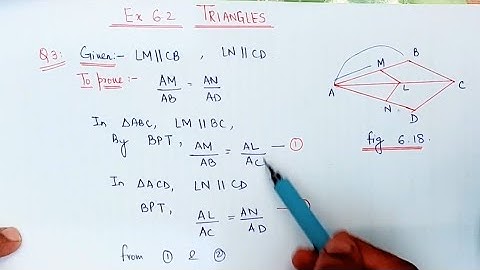 Ex 6.2 TRIANGLES
Q3: Given:- LM || CB , LN || CD
To prove:- AM/AB = AN/AD
In △ABC, LM || BC,
By BPT, AM/AB = AL/AC — ①
In △ACD, LN || CD
BPT, AL/AC = AN/AD —
from ① & ②
A
M
B
L
C
N
D
fig 6.18.